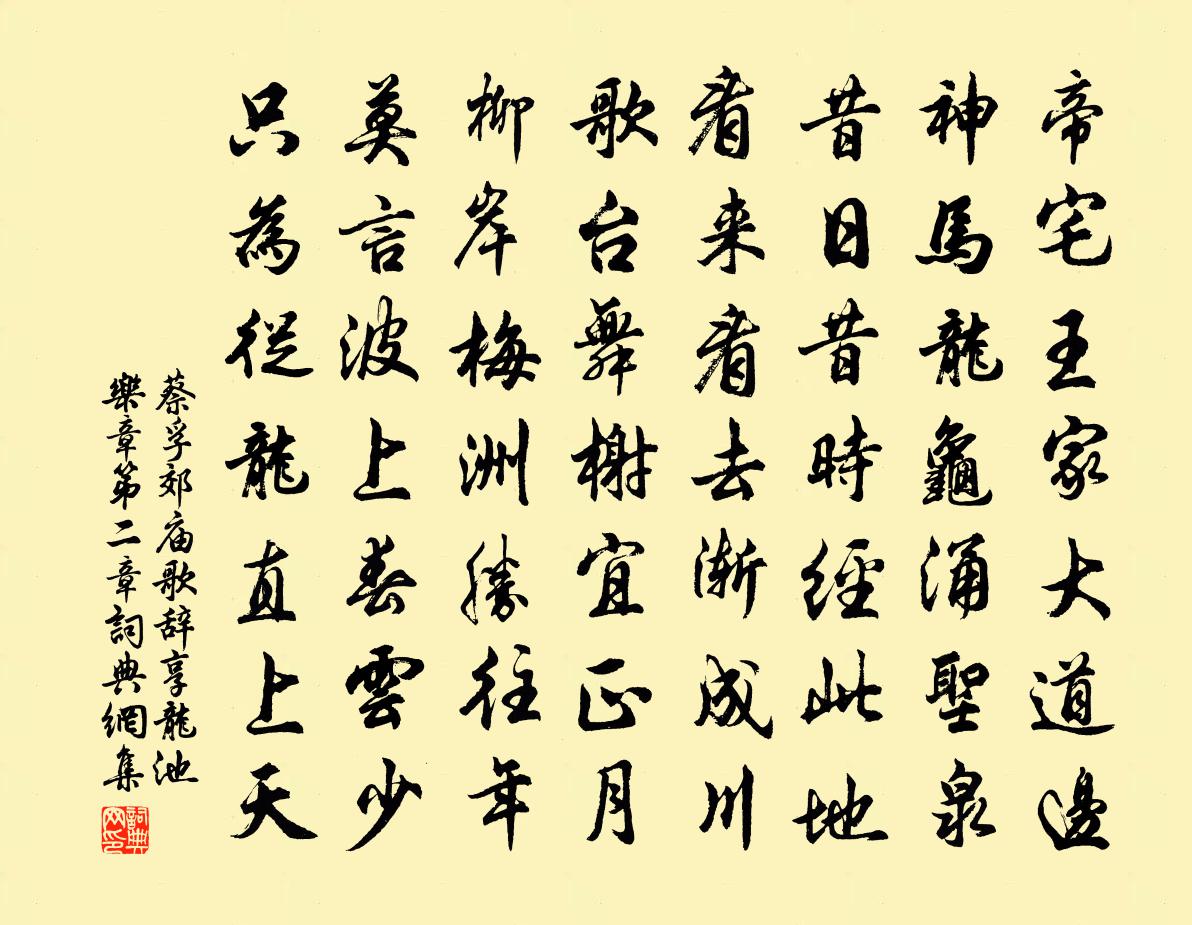 帝宅王家大道邊
神馬龍龜涌聖泉
昔日昔時經此地
看來看去漸成川
歌台舞榭宜正月
柳岸梅洲勝往年
莫言波上春雲少
只為從龍直上天
蔡孚郊庙歌辞享龍池
樂章第二章詞典網集
詞典
网印